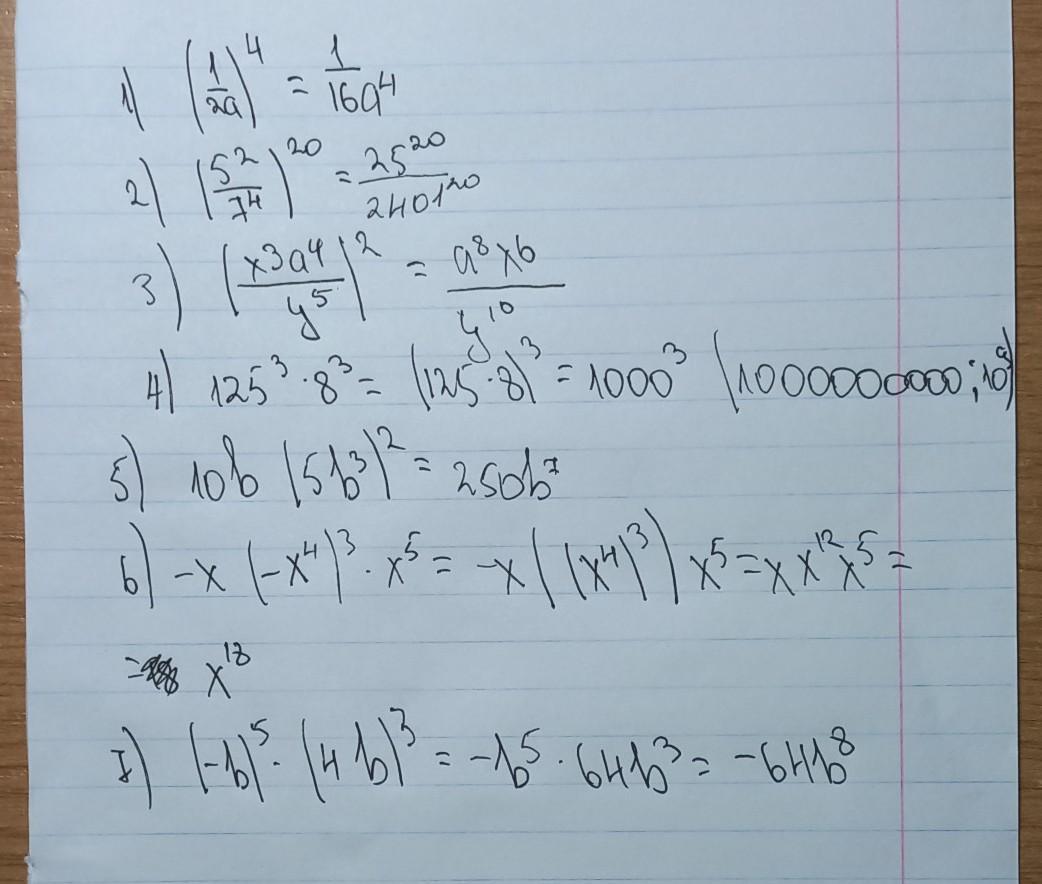 1) (1/2a)^4 = 1/16a^4
2) (5^2/7^4)^20 = 25^20/2401^20
3) (x3a^4/y^5)^2 = a^8x6/y^10
4) 125^3 · 8^3 = (125·8)^3 = 1000^3 (1000000000; 10^9)
5) 10b (5b^3)^2 = 250b^7
6) -x (-x^4)^3 · x^5 = -x ((x^4)^3) x^5 = x x^12 x^5 =
= x^18
7) (-b)^5 · (4b)^3 = -b^5 · 64b^3 = -64b^8